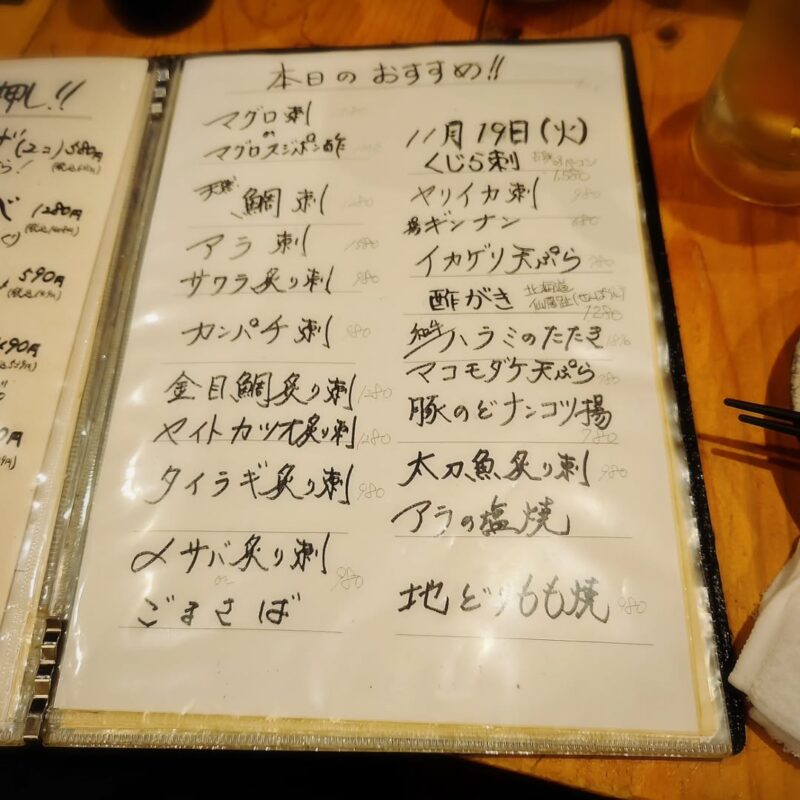 押し!!
(2コ) 580円
ら!
1280円
590円
690円
本日のおすすめ!!
マグロ刺
or
マグロスジポン酢
天然 鯛刺 1280
アラ刺 1580
サワラ炙り刺 980
カンパチ刺 980
金目鯛炙り刺 1280
ヤイトカツオ炙り刺 1280
タイラギ炙り刺 980
〆サバ炙り刺 980
or
ごまさば
11月19日(火)
くじら刺 1580
ヤリイカ刺 980
揚ギンナン 680
イカゲソ天ぷら 780
酢がき 北海道 仙鳳趾(せんぽうし) 1280
和牛ハラミのたたき
マコモダケ天ぷら 780
豚のどナンコツ揚 780
太刀魚炙り刺 980
アラの塩焼
地どりもも焼 980